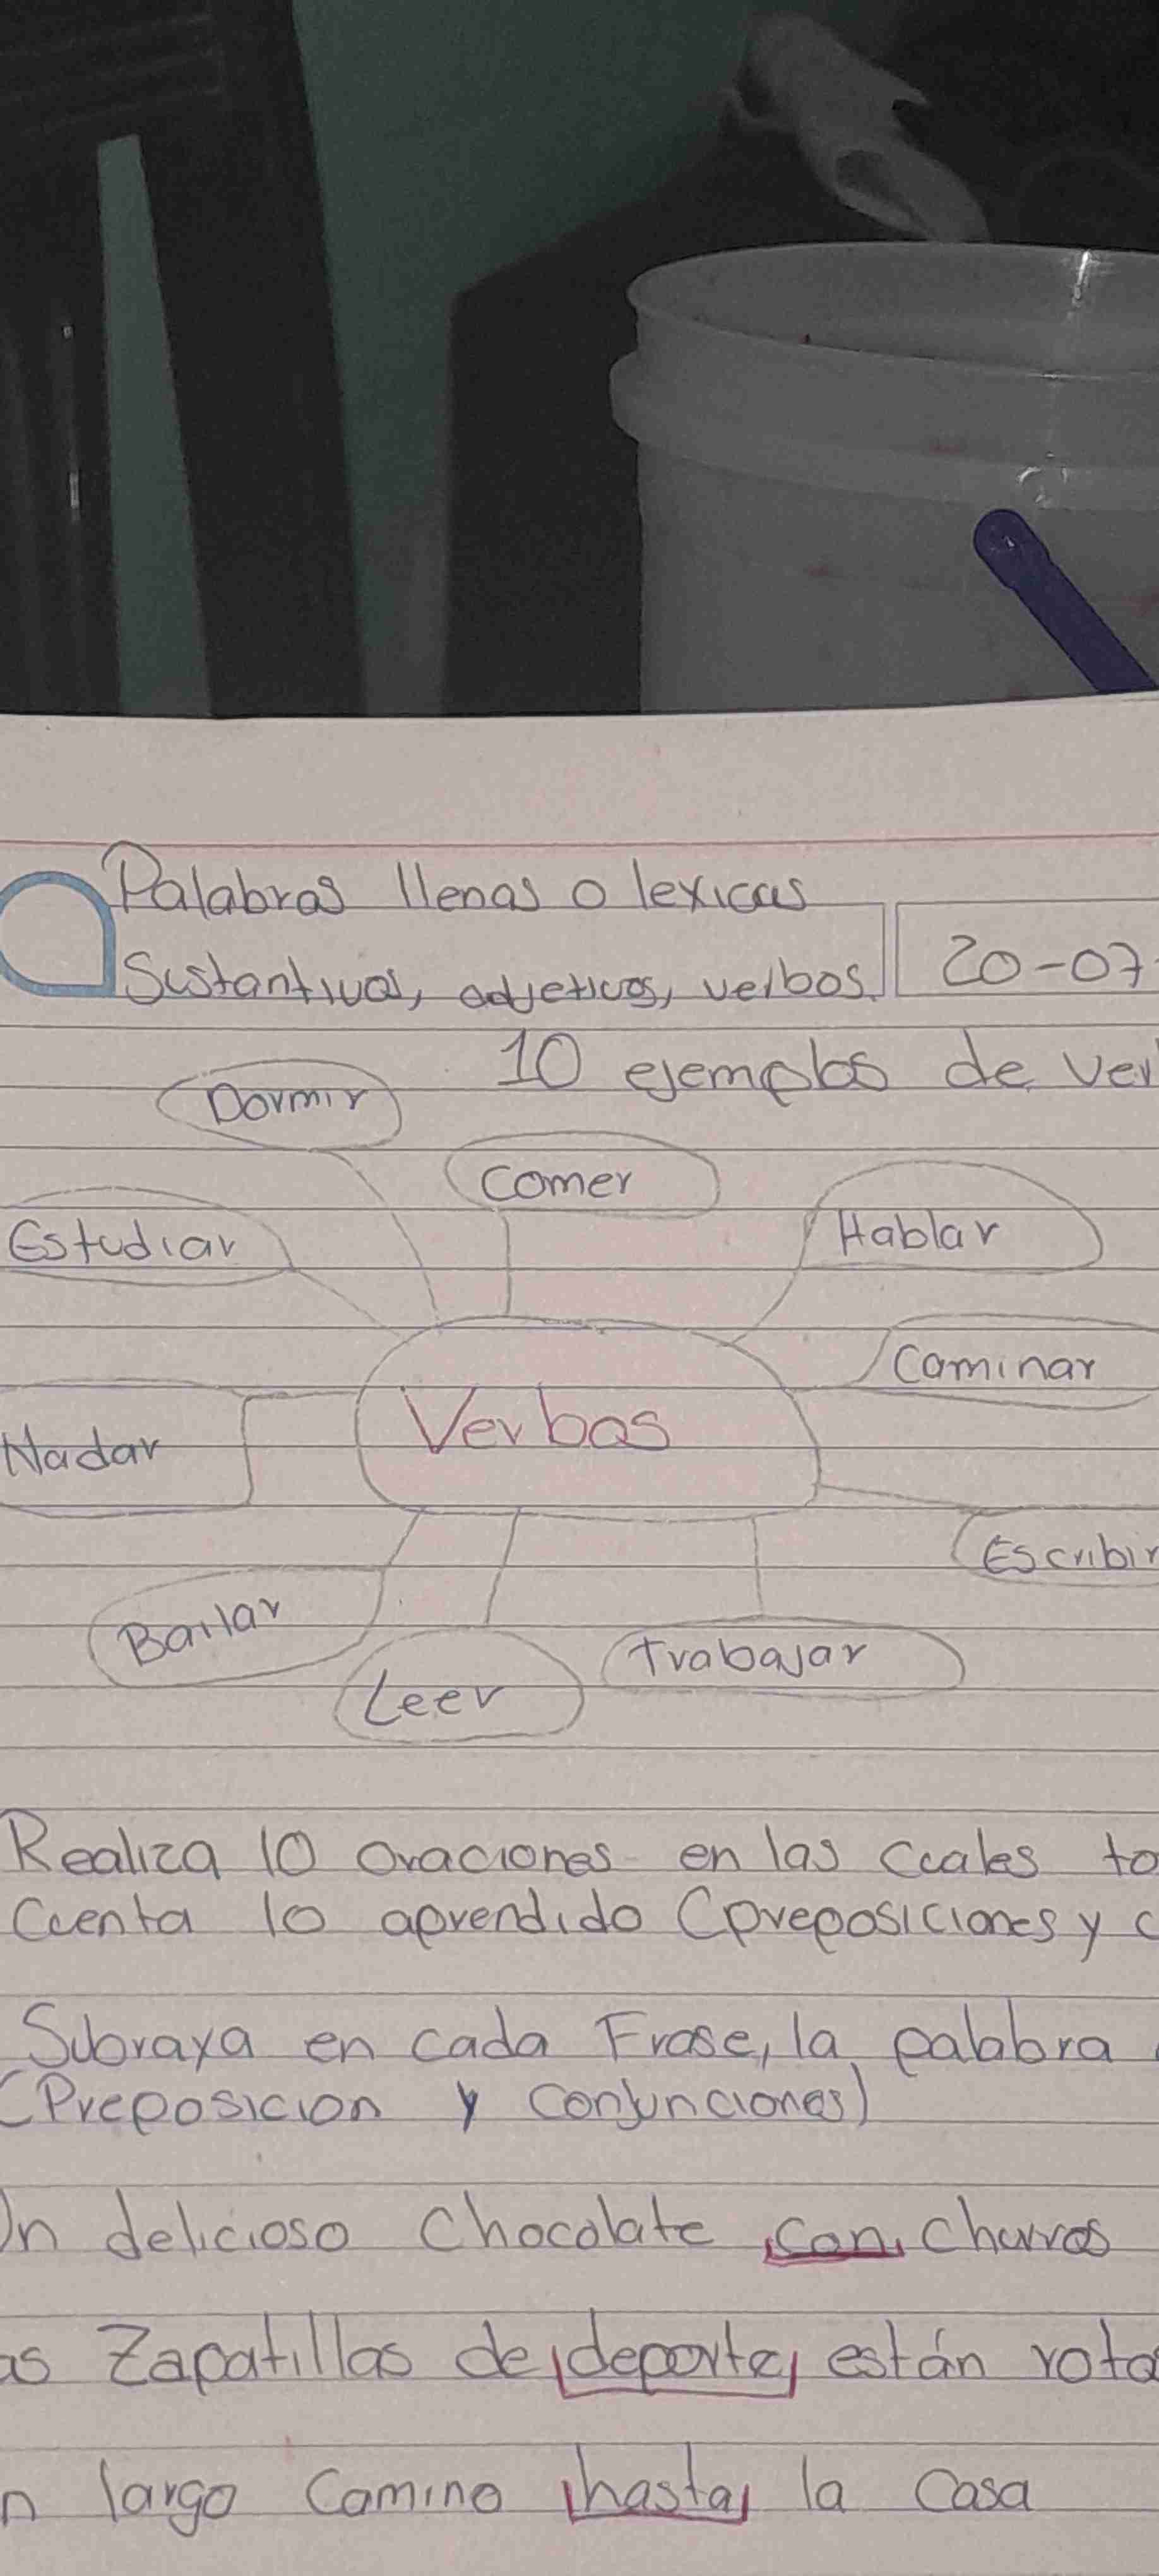 Palabras llenas o lexicas
Sustantivos, adjetivos, verbos.
20-07
10 ejemplos de ver
Dormir
Comer
Estudiar
Hablar
Caminar
Verbos
Nadar
Escribir
Bailar
Trabajar
Leer
Realiza 10 oraciones en las cuales to
Cuenta lo aprendido (preposiciones y c
Subraya en cada Frase, la palabra
(Preposicion y conjunciones)
Un delicioso Chocolate con churros
as Zapatillas de deporte están rotas
n largo Camino hasta la Casa